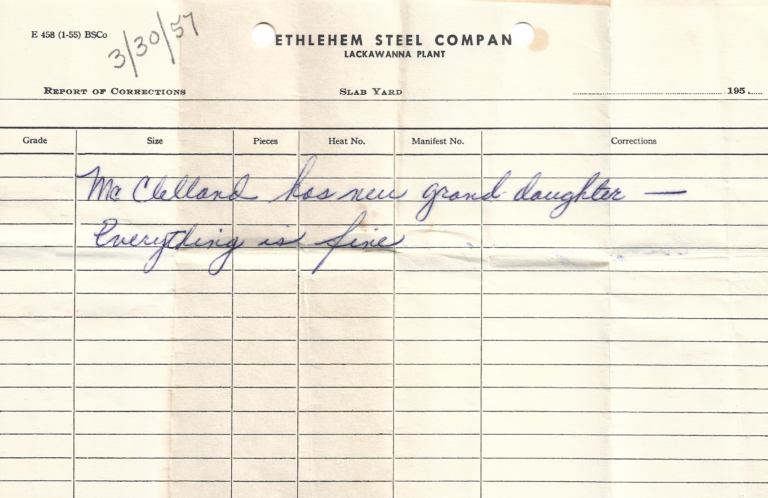 E 458 (1-55) BSCo
3/30/57
ETHLEHEM STEEL COMPAN
LACKAWANNA PLANT
REPORT OF CORRECTIONS SLAB YARD 195
Grade Size Pieces Heat No. Manifest No. Corrections
Mc Clelland has new grand-daughter —
Everything is fine